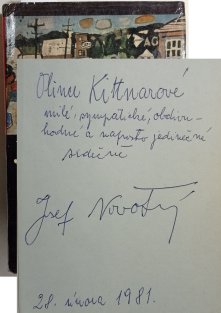 Olince Kittnarové
milé, sympatické, obdivu-
hodné a naprosto jedinečné
srdečně
Josef Novotný
28. února 1981.